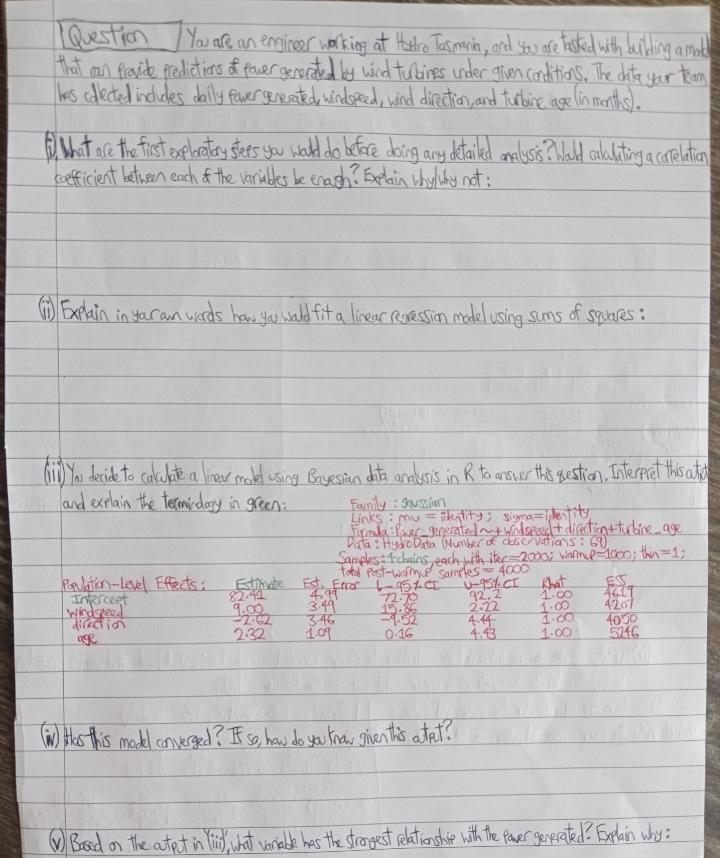 Question You are an engineer working at Hydro Tasmania, and you are tasked with building a model
that can provide predictions of power generated by wind turbines under given conditions. The data your team
has collected includes daily power generated, windspeed, wind direction, and turbine age (in months).
(i) What are the first exploratory steps you would do before doing any detailed analysis? Would calculating a correlation
coefficient between each of the variables be enough? Explain why/why not:
(ii) Explain in your own words how you would fit a linear regression model using sums of squares:
(iii) You decide to calculate a linear model using Bayesian data analysis in R to answer this question. Interpret this output
and explain the terminology in green:
Family : gaussian
Links : mu = identity; sigma=identity
Formula: power_generated ~ + windspeed + direction + turbine_age
Data : HydroData (Number of observations : 69)
Samples: 4 chains, each with iter=2000; warmup=1000; thin=1;
total Post-warmup samples = 4000
Population-Level Effects : Estimate Est. Error l-95% CI u-95% CI Rhat ESS
Intercept 82.41 4.94 72.70 92.2 1.00 4617
windspeed 9.00 3.49 15.86 2.22 1.00 4207
direction -2.62 3.46 -9.52 4.44 1.00 4050
age 2.32 1.09 0.16 4.43 1.00 5246
(iv) Has this model converged? If so, how do you know given this output?
(v) Based on the output in '(iii)', what variable has the strongest relationship with the power generated? Explain why: